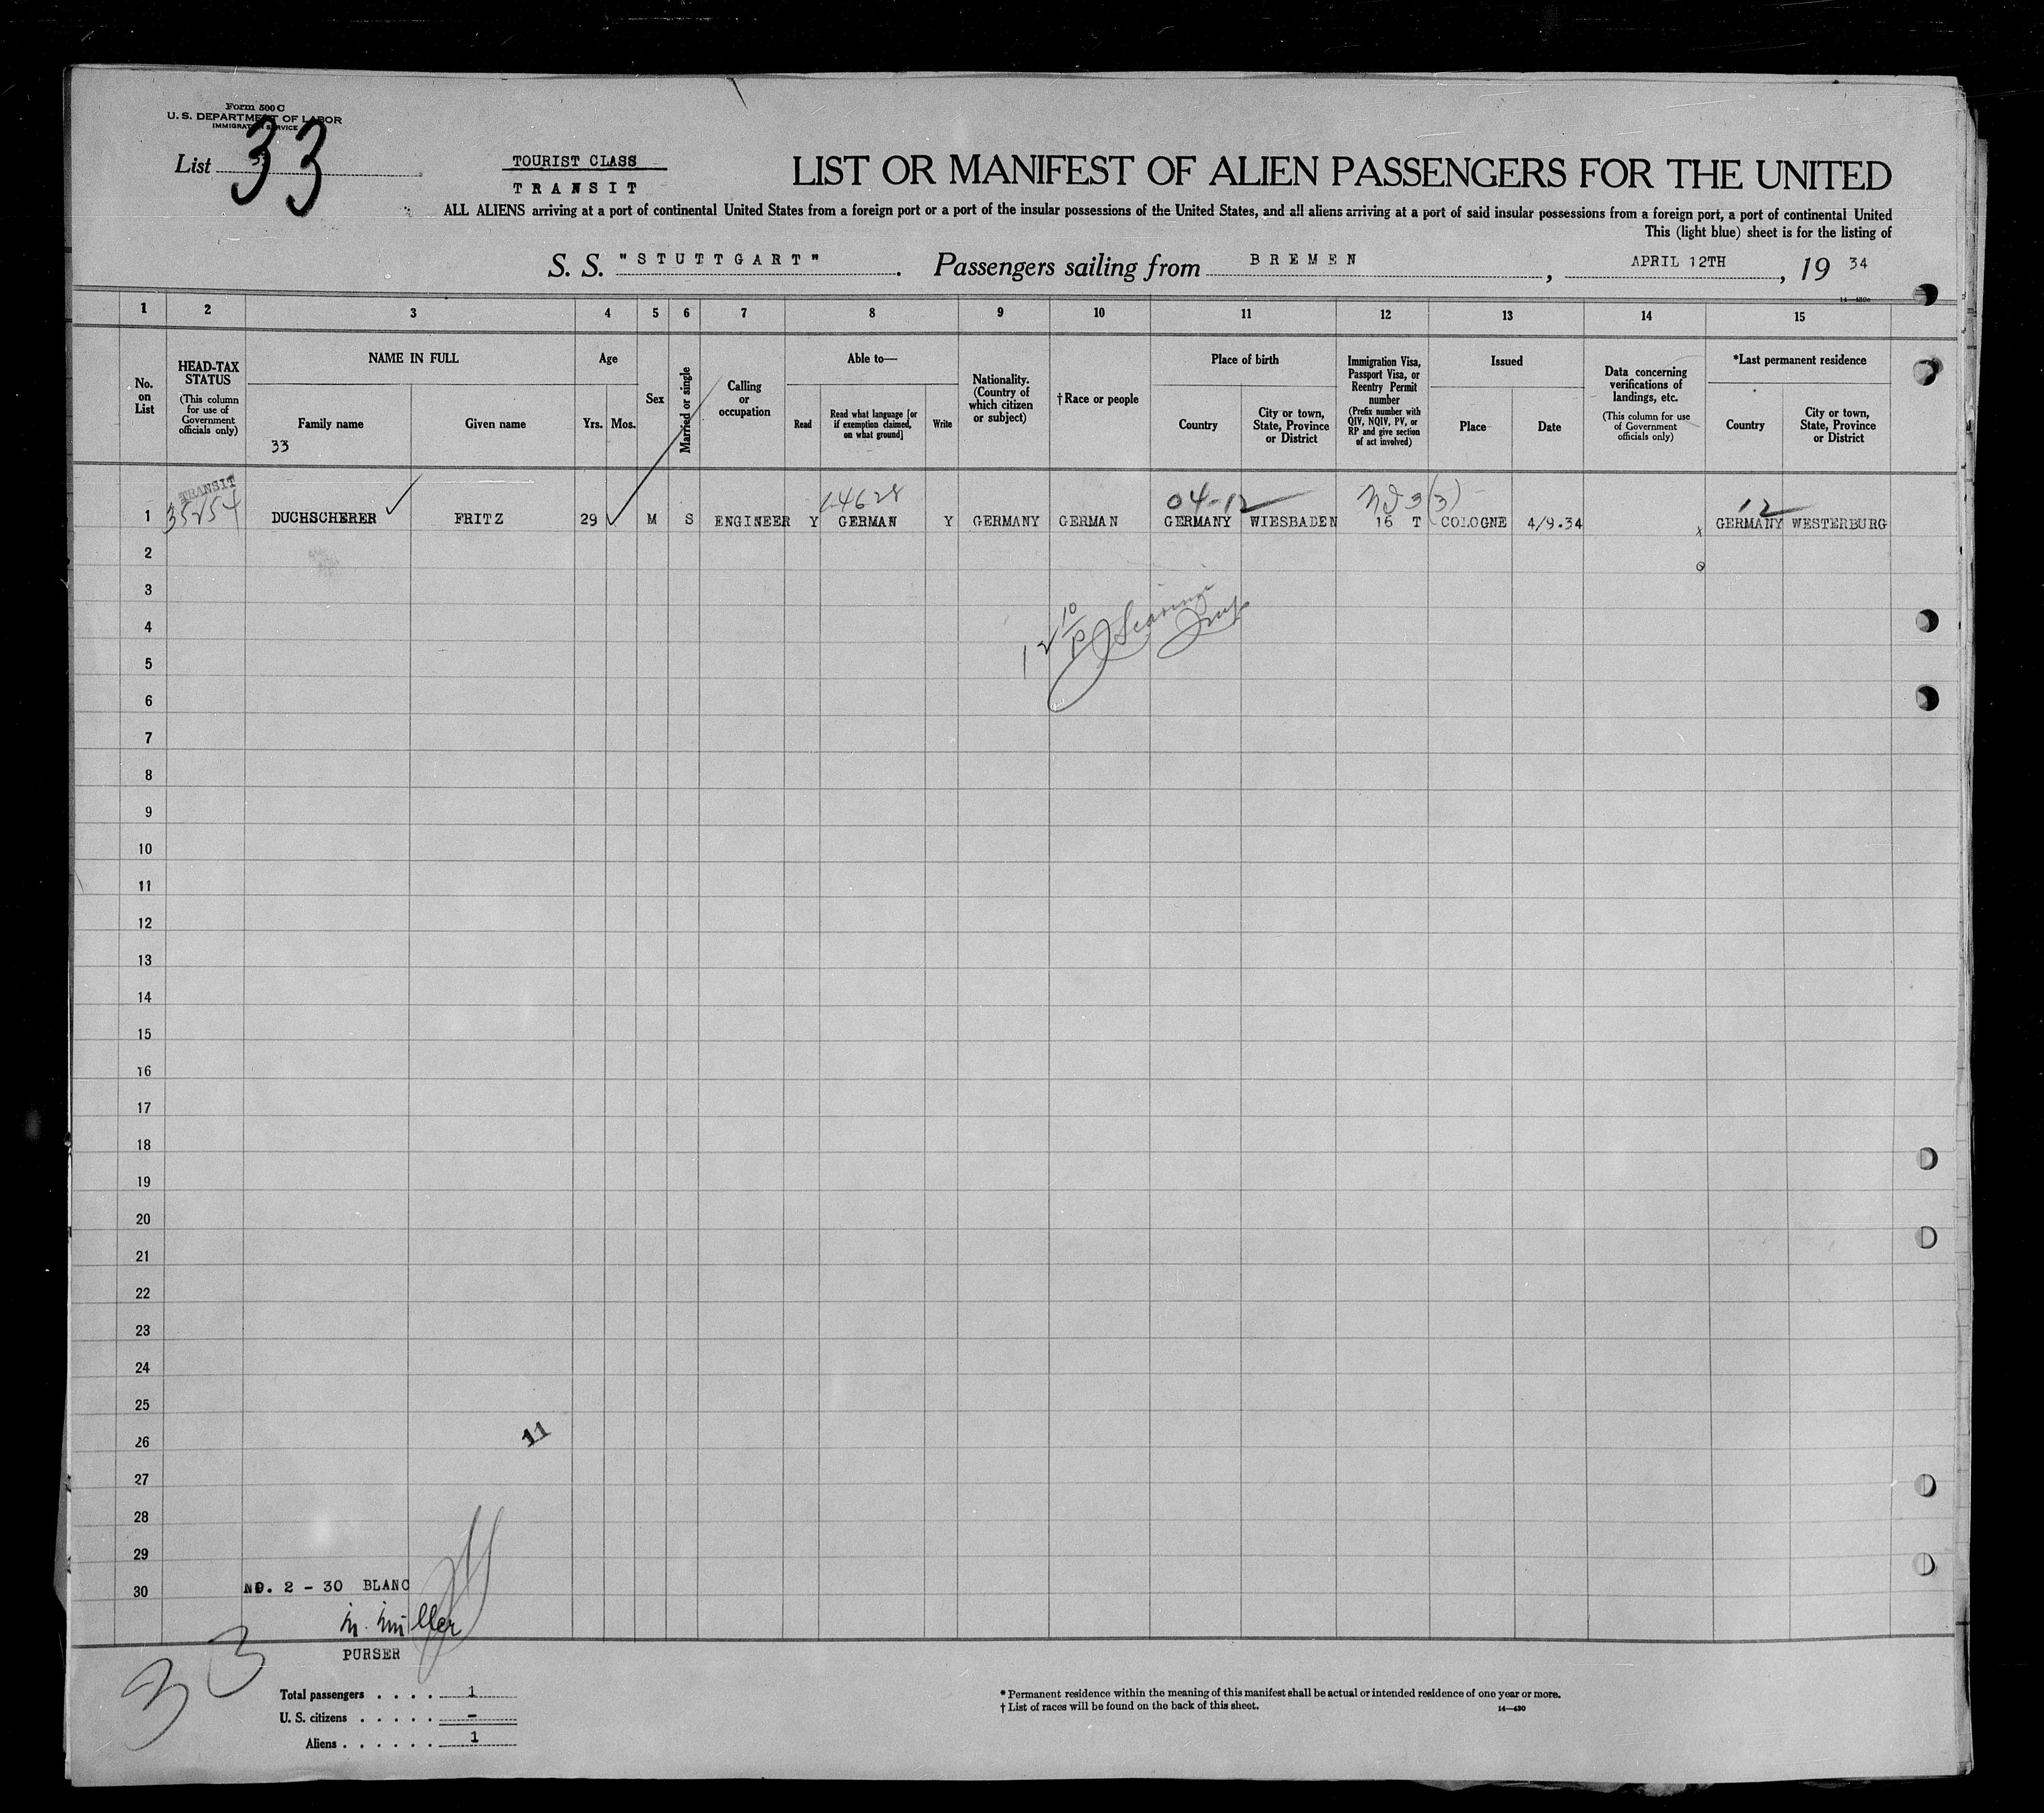 Form 500 C
U. S. DEPARTMENT OF LABOR
IMMIGRATION SERVICE
List 33
33
TOURIST CLASS
TRANSIT
LIST OR MANIFEST OF ALIEN PASSENGERS FOR THE UNITED
ALL ALIENS arriving at a port of continental United States from a foreign port or a port of the insular possessions of the United States, and all aliens arriving at a port of said insular possessions from a foreign port, a port of continental United
This (light blue) sheet is for the listing of
S. S. "STUTTGART". Passengers sailing from BREMEN, APRIL 12TH, 19 34
14—430c
1 2 3 4 5 6 7 8 9 10 11 12 13 14 15
No. on List
HEAD-TAX STATUS
(This column for use of Government officials only)
NAME IN FULL
Family name
Given name
33
Age
Yrs. Mos.
Sex
Married or single
Calling or occupation
Able to—
Read
Read what language [or if exemption claimed, on what ground]
Write
Nationality. (Country of which citizen or subject)
†Race or people
Place of birth
Country
City or town, State, Province or District
Immigration Visa, Passport Visa, or Reentry Permit number
(Prefix number with QIV, NQIV, PV, or RP and give section of act involved)
Issued
Place
Date
Data concerning verifications of landings, etc.
(This column for use of Government officials only)
*Last permanent residence
Country
City or town, State, Province or District
TRANSIT
04-12
3(3)
12
1 DUCHSCHERER FRITZ 29 M S ENGINEER Y GERMAN Y GERMANY GERMAN GERMANY WIESBADEN 16 T COLOGNE 4/9.34 x GERMANY WESTERBURG
2
3
4
5
6
7
8
9
10
11
12
13
14
15
16
17
18
19
20
21
22
23
24
25
11
26
27
28
29
30 NO. 2 - 30 BLANC
m. müller
PURSER
33
Total passengers . . . . 1
U. S. citizens . . . . . -
Aliens . . . . . . 1
* Permanent residence within the meaning of this manifest shall be actual or intended residence of one year or more.
† List of races will be found on the back of this sheet.
14—430